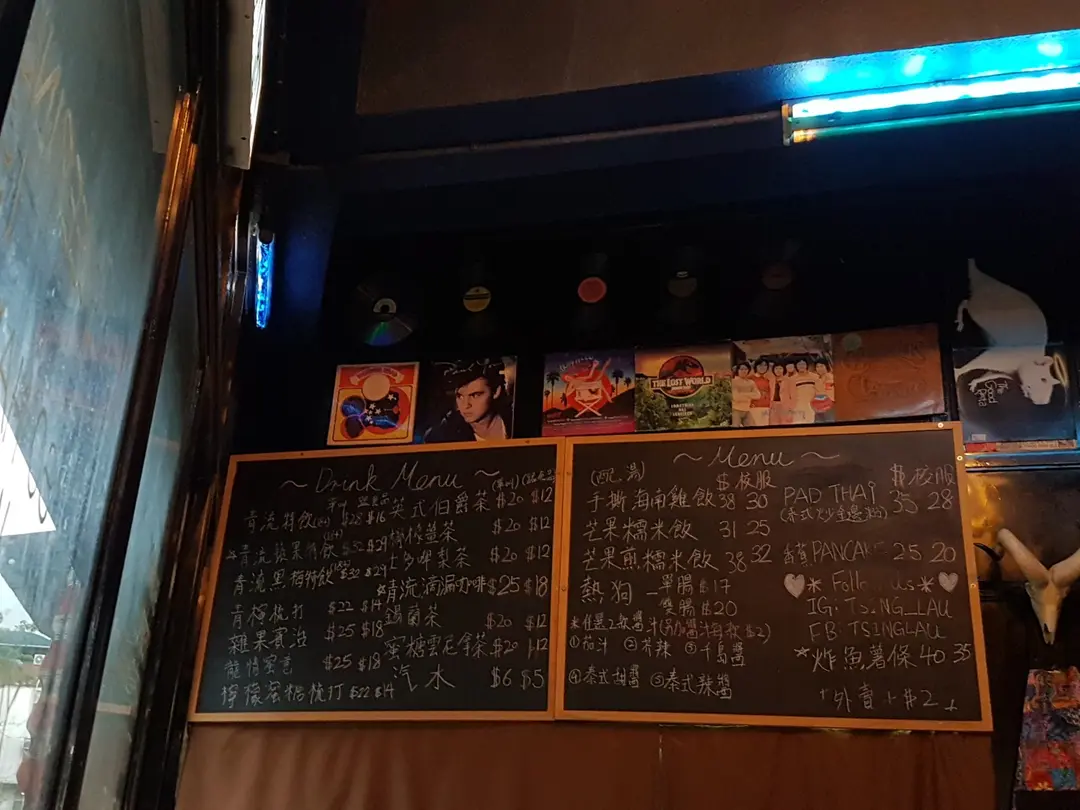 THE LOST WORLD
~ Drink Menu ~
青流特飲 $28 $16
青流雜果特飲 $32 $24
青流黑梅特飲 $32 $24
青檸梳打 $22 $14
雜果賓治 $25 $18
$25 $18
檸檬蜜糖梳打 $22 $14
英式伯爵茶 $20 $12
$20 $12
$20 $12
青流滴漏咖啡 $25 $18
錫蘭茶 $20 $12
蜜糖雲尼拿茶 $20 $12
汽水 $6 $5
~ Menu ~
(配湯) $ 校服
手撕海南雞飯 38 30
芒果糯米飯 31 25
芒果煎糯米飯 38 32
熱狗 - 單腸 $17
雙腸 $20
*任選2款醬汁(另加醬汁每款$2)
①茄汁 ②芥辣 ③千島醬
④泰式甜醬 ⑤泰式辣醬
$ 校服
PAD THAI 35 28
(泰式炒金邊粉)
香蕉PANCAKE 25 20
* Follow us *
IG: TSING_LAU
FB: TSINGLAU
*炸魚薯條 40 35
外賣 + $2